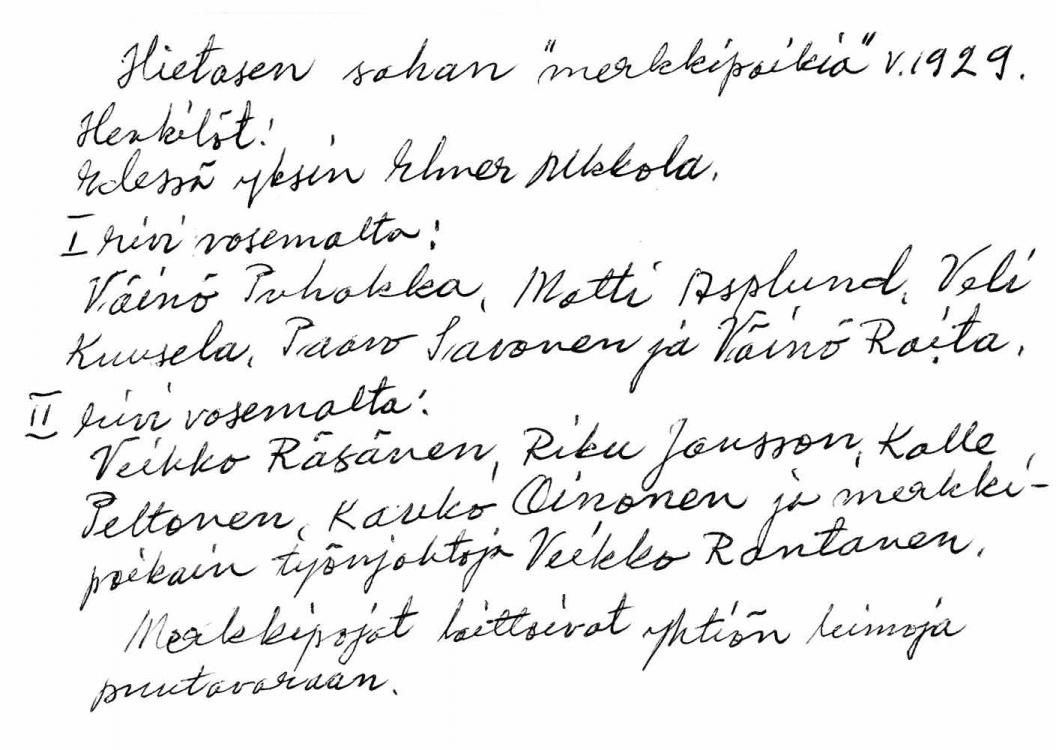 Hietasen sahan "merkkipoikia" v. 1929.
Henkilöt:
Edessä yksin Elmer Ukkola.
I rivi vasemalta:
Väinö Puhakka, Matti Asplund, Veli
Kuusela, Paavo Savonen ja Väinö Raita.
II rivi vasemalta:
Veikko Räsänen, Riku Jansson, Kalle
Peltonen, Kauko Oinonen ja merkki-
poikain työnjohtaja Veikko Rantanen.
Merkkipojat laittoivat yhtiön leimoja
puutavaraan.